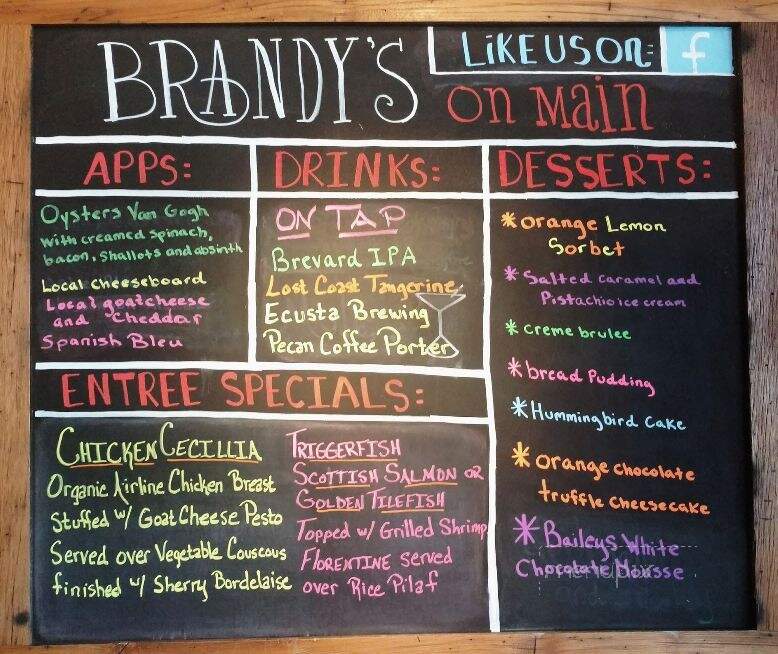 BRANDY'S
LIKE US ON: f
on Main
APPS:
Oysters Van Gogh
with creamed spinach,
bacon, shallots and absinth
Local cheeseboard
Local goat cheese
and Cheddar
Spanish Bleu
DRINKS:
ON TAP
Brevard IPA
Lost Coast Tangerine
Ecusta Brewing
Pecan Coffee Porter
DESSERTS:
* Orange Lemon
Sorbet
* Salted Caramel and
Pistachio ice cream
* creme brulee
* bread Pudding
* Hummingbird Cake
* Orange chocolate
truffle Cheesecake
* Baileys White
Chocolate Mousse
ENTREE SPECIALS:
CHICKEN CECILLIA
Organic Airline Chicken Breast
Stuffed w/ Goat Cheese Pesto
Served over Vegetable Couscous
finished w/ Sherry Bordelaise
TRIGGERFISH
SCOTTISH SALMON OR
GOLDEN TILEFISH
Topped w/ Grilled Shrimp
FLORENTINE served
over Rice Pilaf